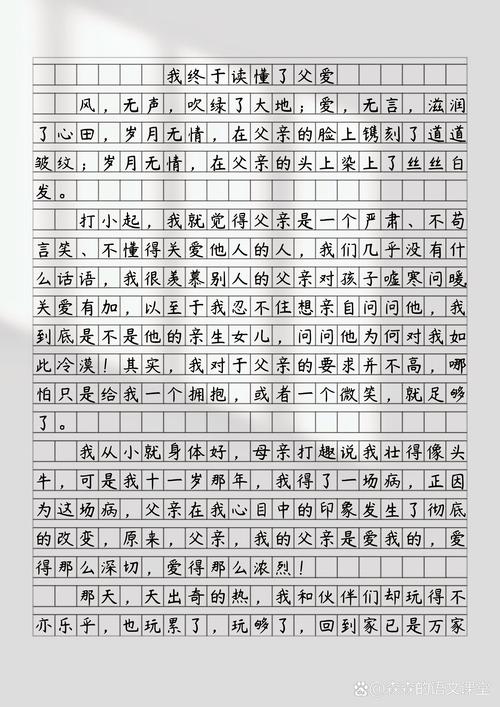 我终于读懂了父爱
风，无声，吹绿了大地；爱，无言，滋润
了心田，岁月无情，在父亲的脸上镌刻了道道
皱纹；岁月无情，在父亲的头上染上了丝丝白
发。
打小起，我就觉得父亲是一个严肃、不苟
言笑、不懂得关爱他人的人，我们几乎没有什
么话语，我很羡慕别人的父亲对孩子嘘寒问暖
关爱有加，以至于我忍不住想亲自问问他，我
到底是不是他的亲生女儿，问问他为何对我如
此冷漠！其实，我对于父亲的要求并不高，哪
怕只是给我一个拥抱，或者一个微笑，就足够
了。
我从小就身体好，母亲打趣说我壮得像头
牛，可是我十一岁那年，我得了一场病，正因
为这场病，父亲在我心目中的印象发生了彻底
的改变，原来，父亲，我的父亲是爱我的，爱
得那么深切，爱得那么浓烈！
那天，天出奇的热，我和伙伴们却玩得不
亦乐乎，也玩累了，玩够了，回到家已是万家
Baidu百科 @森森的语文课堂